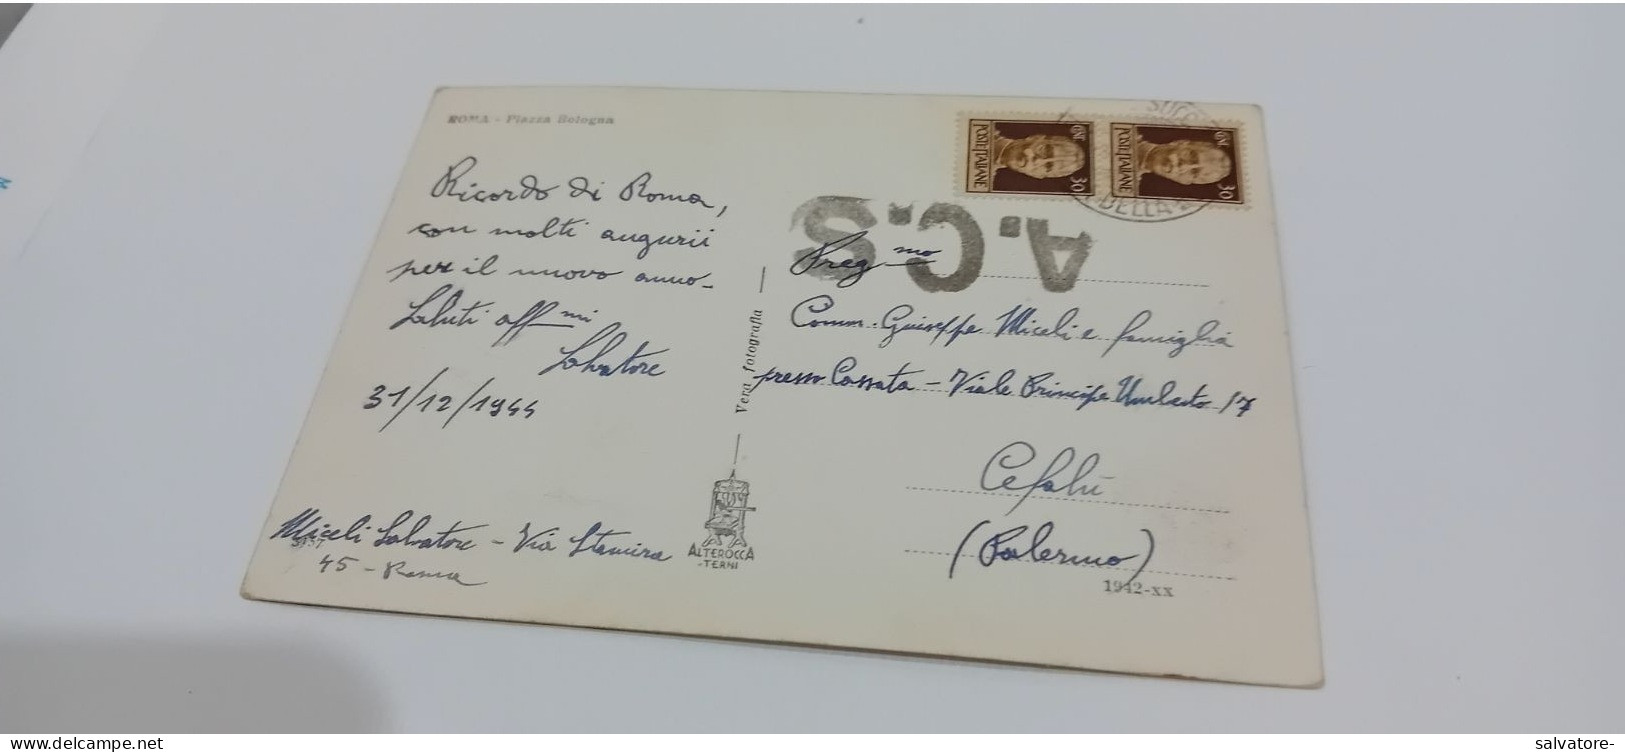 ROMA - Piazza Bologna
Ricordo di Roma,
con molti augurii
per il nuovo anno -
Saluti aff mi
Salvatore
31/12/1944
Miceli Salvatore - Via Stamira
45 - Roma
Vera fotografia
ALTEROCCA
- TERNI
POSTE ITALIANE
30
POSTE ITALIANE
30
DELLA
A.C.S
Preg mo
Comm. Giuseppe Miceli e famiglia
presso Cassata - Viale Principe Umberto 17
Cefalù
(Palermo)
1942-XX
delcampe.net
salvatore-